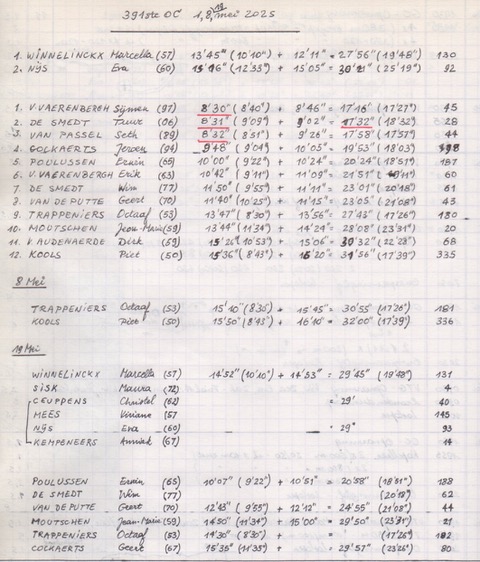 391ste OC 1, 8, 19 mei 2025
1. WINNELINCKX Marcella (57) 13'45" (10'10") + 12'11" = 27'56" (19'48") 130
2. NŸS Eva (60) (12'33") + 15'05" = (25'19") 92
1. V.VAERENBERGH Sijmen (97) 8'30" (8'40") + 8'46" = 17'16" (17'27") 45
2. DE SMEDT Tuur (06) 8'31" (9'09") + 9'02" = 17'32" (18'32") 28
3. VAN PASSEL Seth (89) 8'32" (8'31") + 9'26" = 17'58" (17'57") 44
4. COLKAERTS Jeroen (94) 9'48" (9'04") + 10'05" = 19'53" (18'03")
5. POULUSSEN Erwin (65) 10'00" (9'22") + 10'24" = 20'24" (18'51") 187
6. V.VAERENBERGH Erik (63) 10'42" (9'11") + 11'09" = 21'51" 60
7. DE SMEDT Wim (77) 11'50" (9'55") + 11'11" = 23'01" (20'18") 61
8. VAN DE PUTTE Geert (70) 11'40" (10'25") + 11'15" = 23'05" (21'08") 43
9. TRAPPENIERS Octaaf (53) 13'47" (8'30") + 13'56" = 27'43" (17'26") 180
10. MOUTSCHEN Jean-Marie (59) 13'44" (11'34") + 14'24" = 28'08" (23'31") 20
11. V.AUDENAERDE Dirk (59) 15'26" (10'53") + 15'06" = 30'32" (22'23") 68
12. KOOLS Piet (50) 15'36" (8'43") + 16'20" = 31'56" (17'39") 335
8 Mei
TRAPPENIERS Octaaf (53) 15'10" (8'30") + 15'45" = 30'55" (17'26") 181
KOOLS Piet (50) 15'50" (8'43") + 16'10" = 32'00" (17'39") 336
19 Mei
WINNELINCKX Marcella (57) 14'52" (10'10") + 14'53" = 29'45" (19'48") 131
SISK Maura (72) 4
CEUPPENS Christel (62) = 29' 40
MEES Viviane (57 145
NŸS Eva (60) = 29" 93
KEMPENEERS Anniek (67) 14
POULUSSEN Erwin (65) 10'07" (9'22") + 10'51" = 20'58" (18'51") 188
DE SMEDT Wim (77) (20'18") 62
VAN DE PUTTE Geert (70) 12'43" (9'55") + 12'12" = 24'55" (21'08") 44
MOUTSCHEN Jean-Marie (59) 14'50" (11'34") + 15'00" = 29'50" (23'31") 21
TRAPPENIERS Octaaf (53) 14'30" (8'30") = (17'26") 182
COLKAERTS Geert (67) 15'35" (11'35") + = 29'57" (23'26") 80